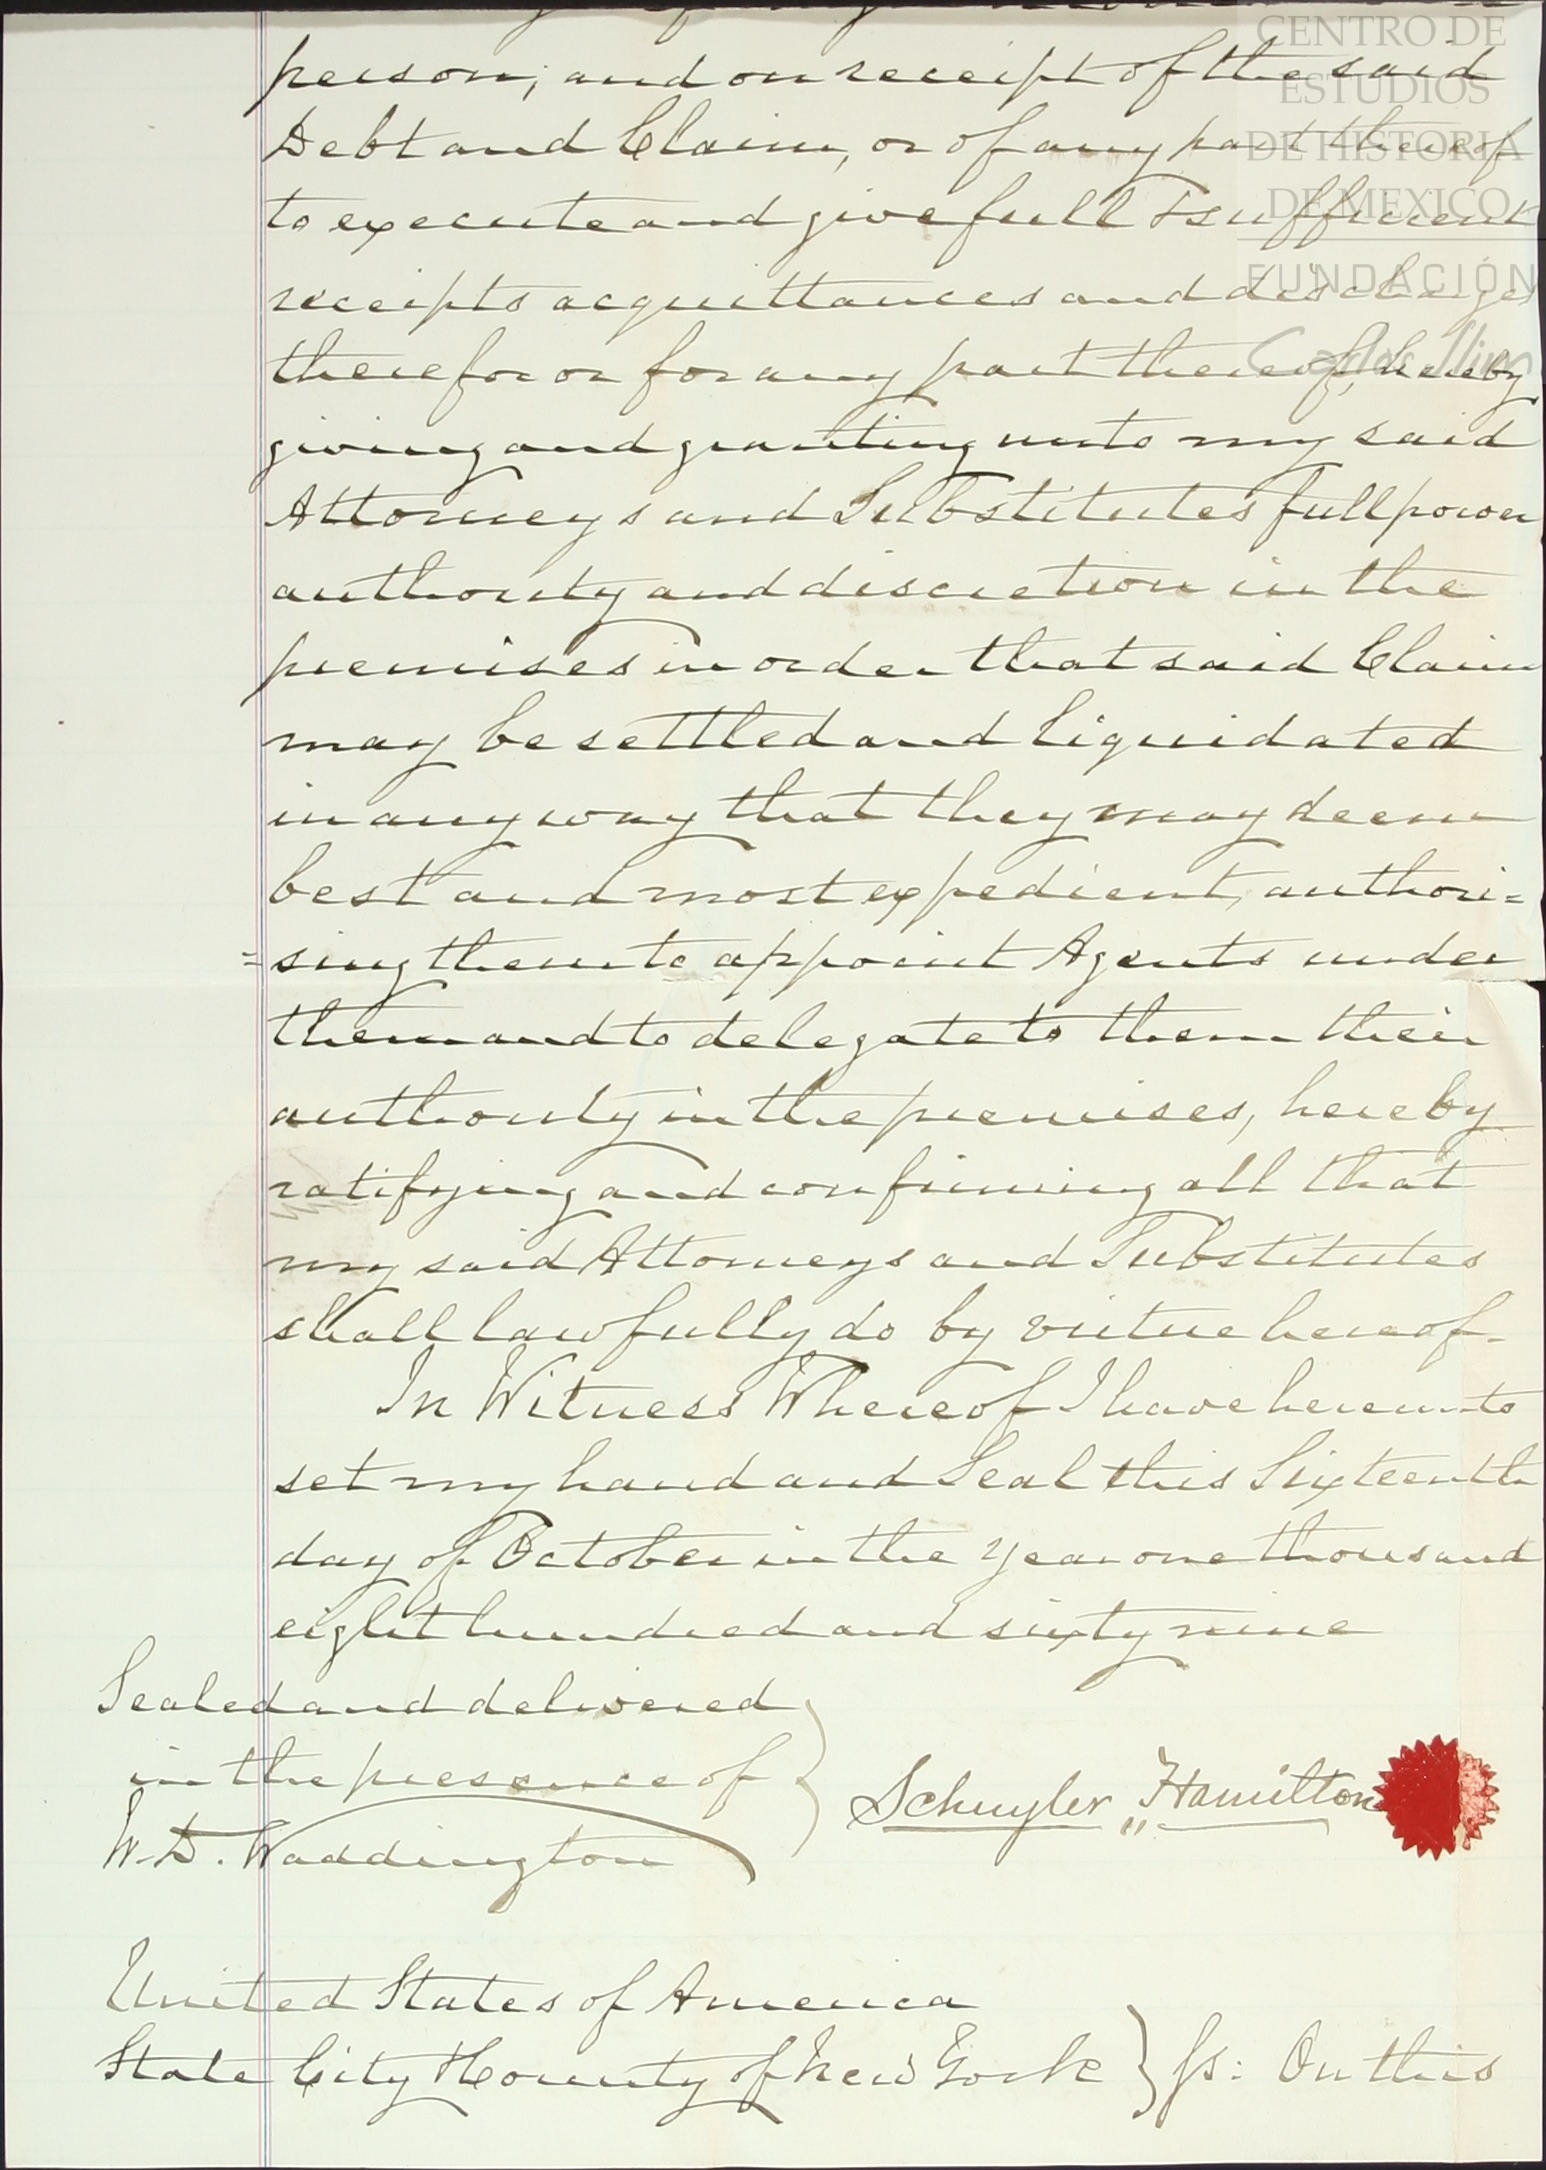 person; and on receipt of the said
Debt and Claim, or of any part thereof
to execute and give full & sufficient
receipts acquittances and discharges
therefor or for any part thereof, hereby
giving and granting unto my said
Attorneys and Substitutes full power
authority and discretion in the
premises in order that said Claim
may be settled and liquidated
in any way that they may deem
best and most expedient, authori=
=sing them to appoint Agents under
them and to delegate to them their
authority in the premises, hereby
ratifying and confirming all that
my said Attorneys and Substitutes
shall lawfully do by virtue hereof.
In Witness Whereof I have hereunto
set my hand and Seal this Sixteenth
day of October in the year one thousand
eight hundred and sixty nine
Sealed and delivered
in the presence of
W. D. Waddington
Schuyler Hamilton
United States of America
State City & County of New York } ss: On this
CENTRO DE
ESTUDIOS
DE HISTORIA
DE MEXICO
FUNDACIÓN
Carlos Slim